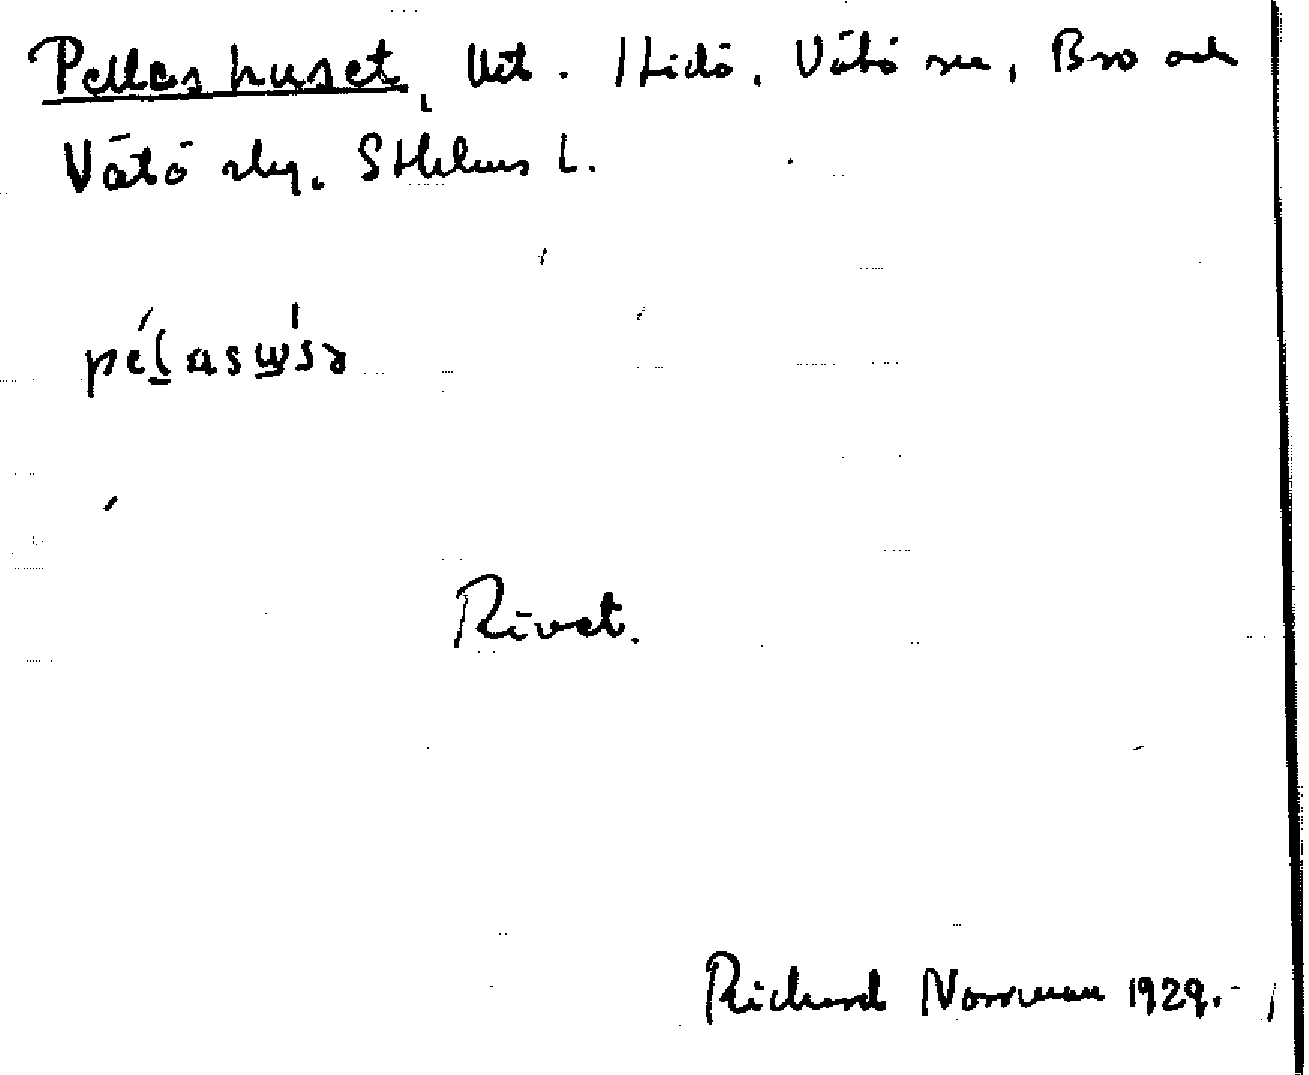 Pellas huset, Utt. Hidö, Vätö sn, Bro och
Vätö slg. Sthlms L.
pél̲asu̲̇sə
Rivet.
Richard Norrman 1929.